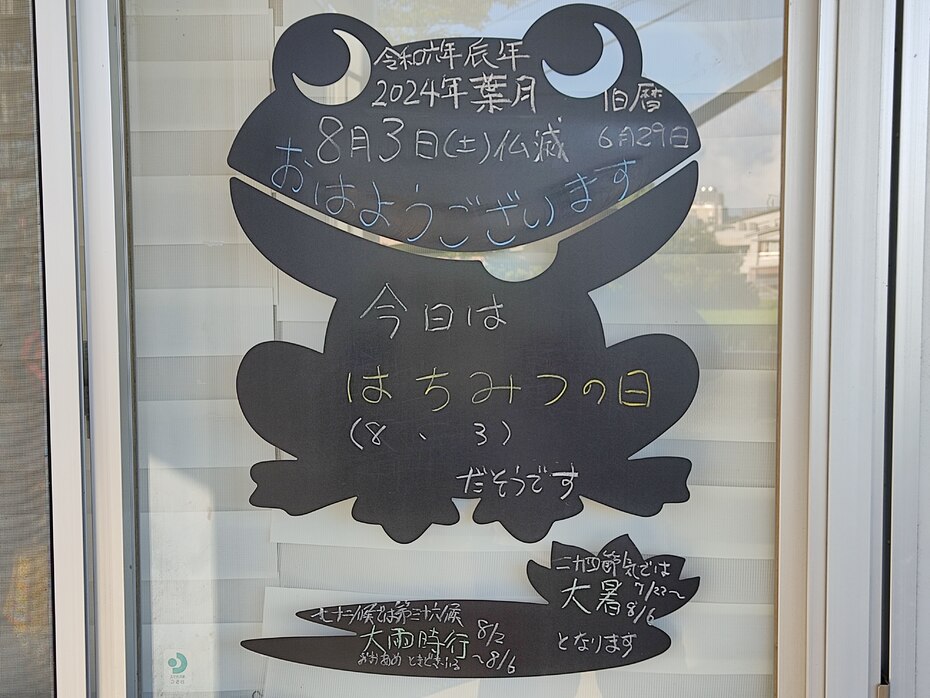 令和六年辰年
2024年葉月
旧暦
8月3日(土)仏滅
6月29日
おはようございます
今日は
はちみつの日
(8、3)
だそうです
二十四節気では
大暑 7/22〜8/6
となります
七十二候では第三十六候
大雨時行 8/2〜8/6
おおあめ ときどきふる